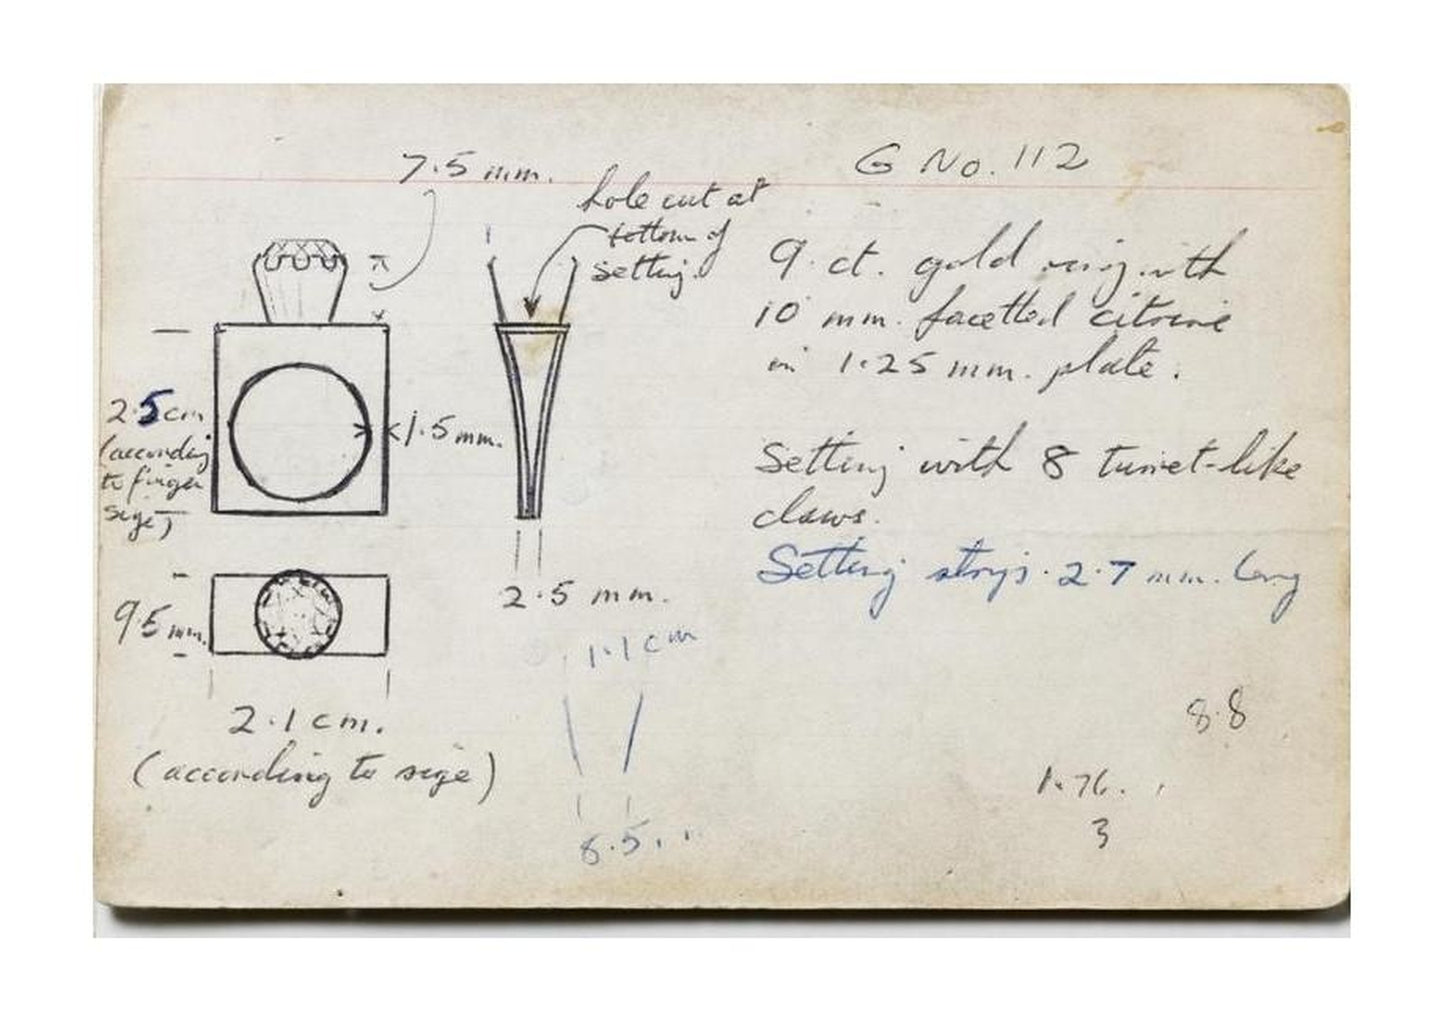 G No. 112
7.5 mm.
hole cut at
bottom of
setting.
9. ct. gold ring with
10 mm. facetted citrine
in 1.25 mm. plate.
2.5cm
(according
to finger
size)
1.5 mm.
Setting with 8 turret-like
claws.
Setting strips. 2.7 mm. long
2.5 mm.
9.5 mm.
1.1 cm
2.1 cm.
(according to size)
8.8
1.76.
3
8.5